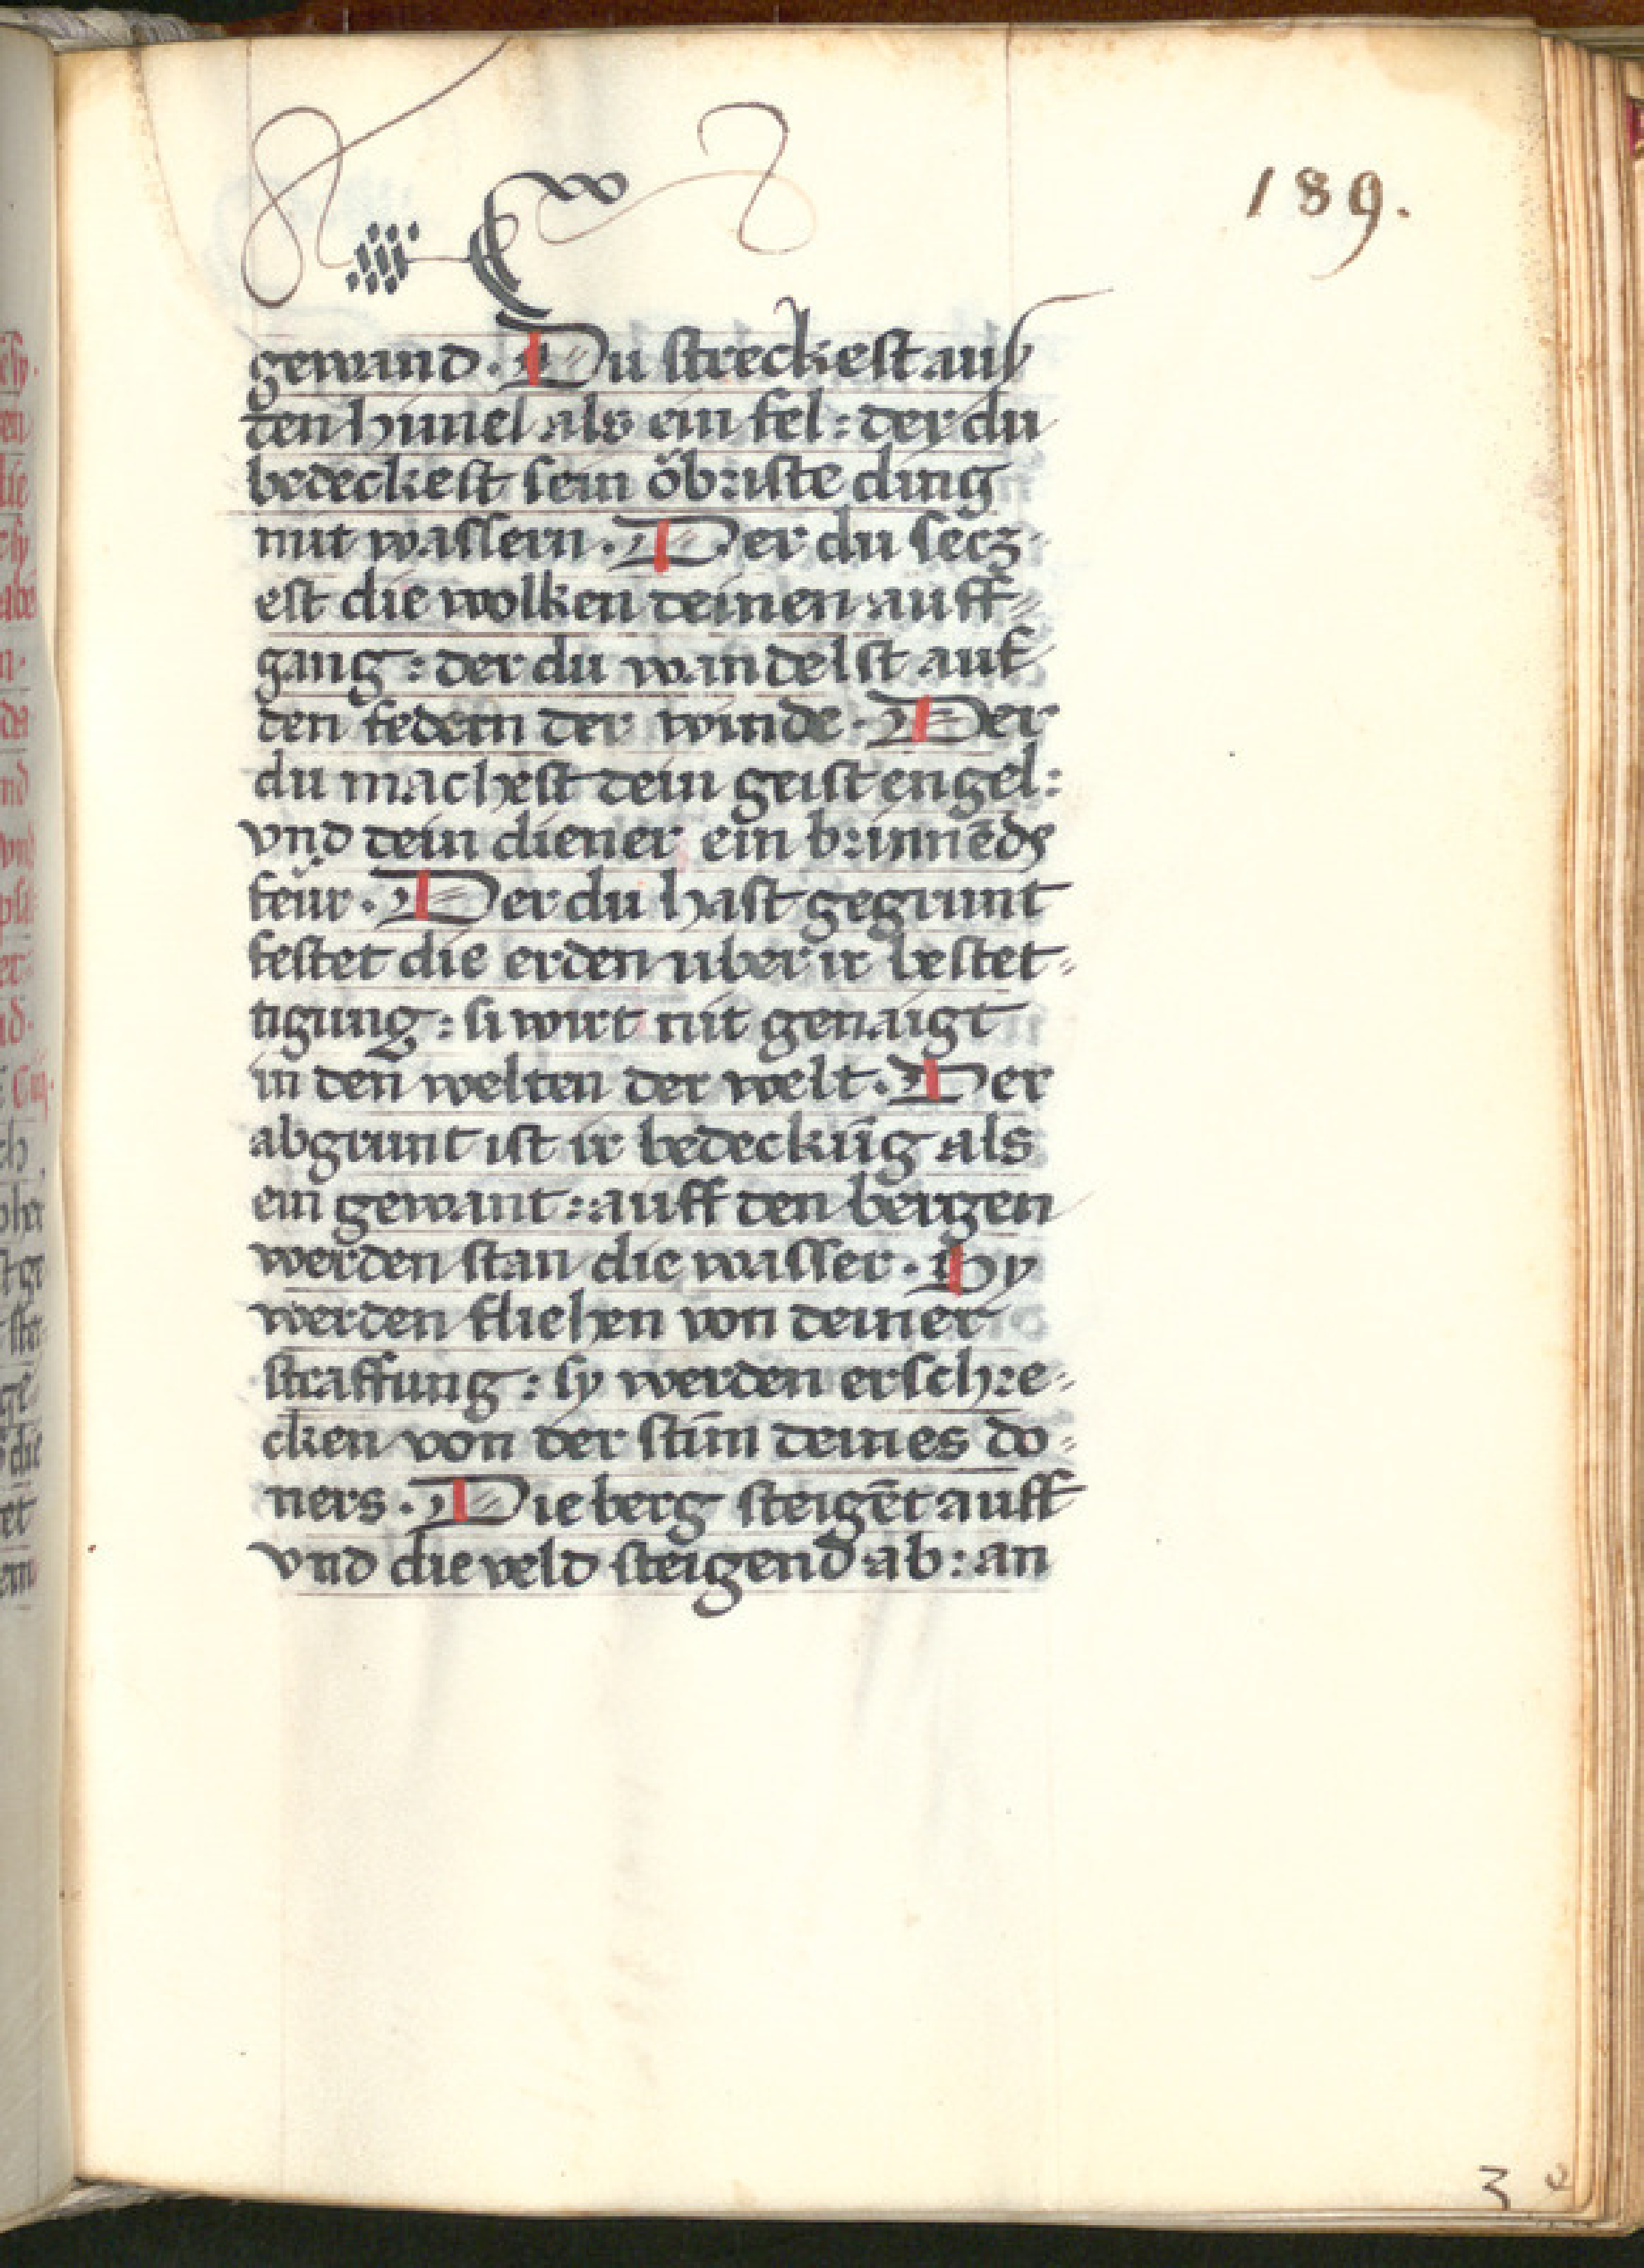 189.
gewand. Du streckest auß
den himel als ein fel: der du
bedeckest sein öbriste ding
mit wassern. Der du secz-
est die wolken deinen auff-
gang: der du wandelst auf
den federn der winde. Der
du machest dein geist engel:
vnd dein diener ein brinnēds
feür. Der du hast gegrunt
festet die erden uber ir bestet-
tigung: si wirt nit genaigt
in den welten der welt. Der
abgrunt ist ir bedeckūg als
ein gewant: auff den bergen
werden stan die wasser. Sy
werden fliehen von deiner
straffung: sy werden erschre-
cken von der stim̄ deines do-
ners. Die berg steigēt auff
vnd die veld steigend ab: an